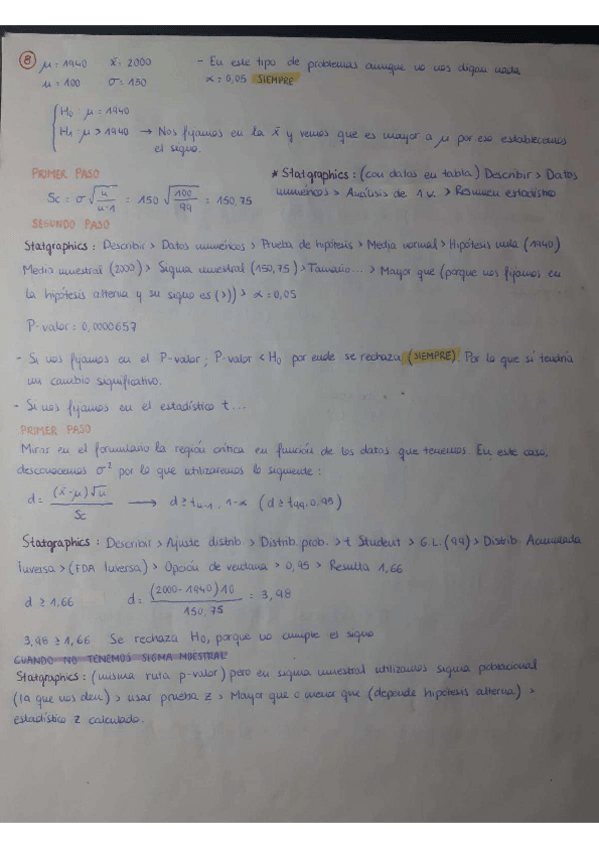 8 μ = 1940 x̄ = 2000 - En este tipo de problemas aunque no nos digan nada
n = 100 σ = 150 α = 0,05 SIEMPRE
H₀ : μ = 1940
H₁ : μ > 1940 → Nos fijamos en la x̄ y vemos que es mayor a μ por eso establecemos
el signo.
PRIMER PASO * Statgraphics : (con datos en tabla) Describir > Datos
Sc = σ √(n/(n-1)) = 150 √(100/99) = 150,75 numéricos > Análisis de 1 v. > Resumen estadístico
SEGUNDO PASO
Statgraphics : Describir > Datos numéricos > Prueba de hipótesis > Media normal > Hipótesis nula (1940)
Media muestral (2000) > Sigma muestral (150,75) > Tamaño... > Mayor que (porque nos fijamos en
la hipótesis alterna y su signo es (>)) > α = 0,05
P-valor : 0,0000657
- Si nos fijamos en el P-valor ; P-valor < H₀ por ende se rechaza (SIEMPRE). Por lo que sí tendría
un cambio significativo.
- Si nos fijamos en el estadístico t...
PRIMER PASO
Mirar en el formulario la región crítica en función de los datos que tenemos. En este caso,
desconocemos σ² por lo que utilizaremos lo siguiente :
d = (x̄-μ)√n / Sc → d ≥ t n-1, 1-α (d ≥ t 99, 0,95)
Statgraphics : Describir > Ajuste distrib > Distrib. prob. > t Student > G.L. (99) > Distrib. Acumulada
Inversa > (FDA Inversa) > Opción de ventana > 0,95 > Resulta 1,66
d ≥ 1,66 d = (2000-1940)10 / 150,75 = 3,98
3,98 ≥ 1,66 Se rechaza H₀, porque no cumple el signo
CUANDO NO TENEMOS SIGMA MUESTRAL
Statgraphics : (misma ruta p-valor) pero en sigma muestral utilizamos sigma poblacional
(la que nos den) > usar prueba z > Mayor que o menor que (depende hipótesis alterna) >
estadístico z calculado.